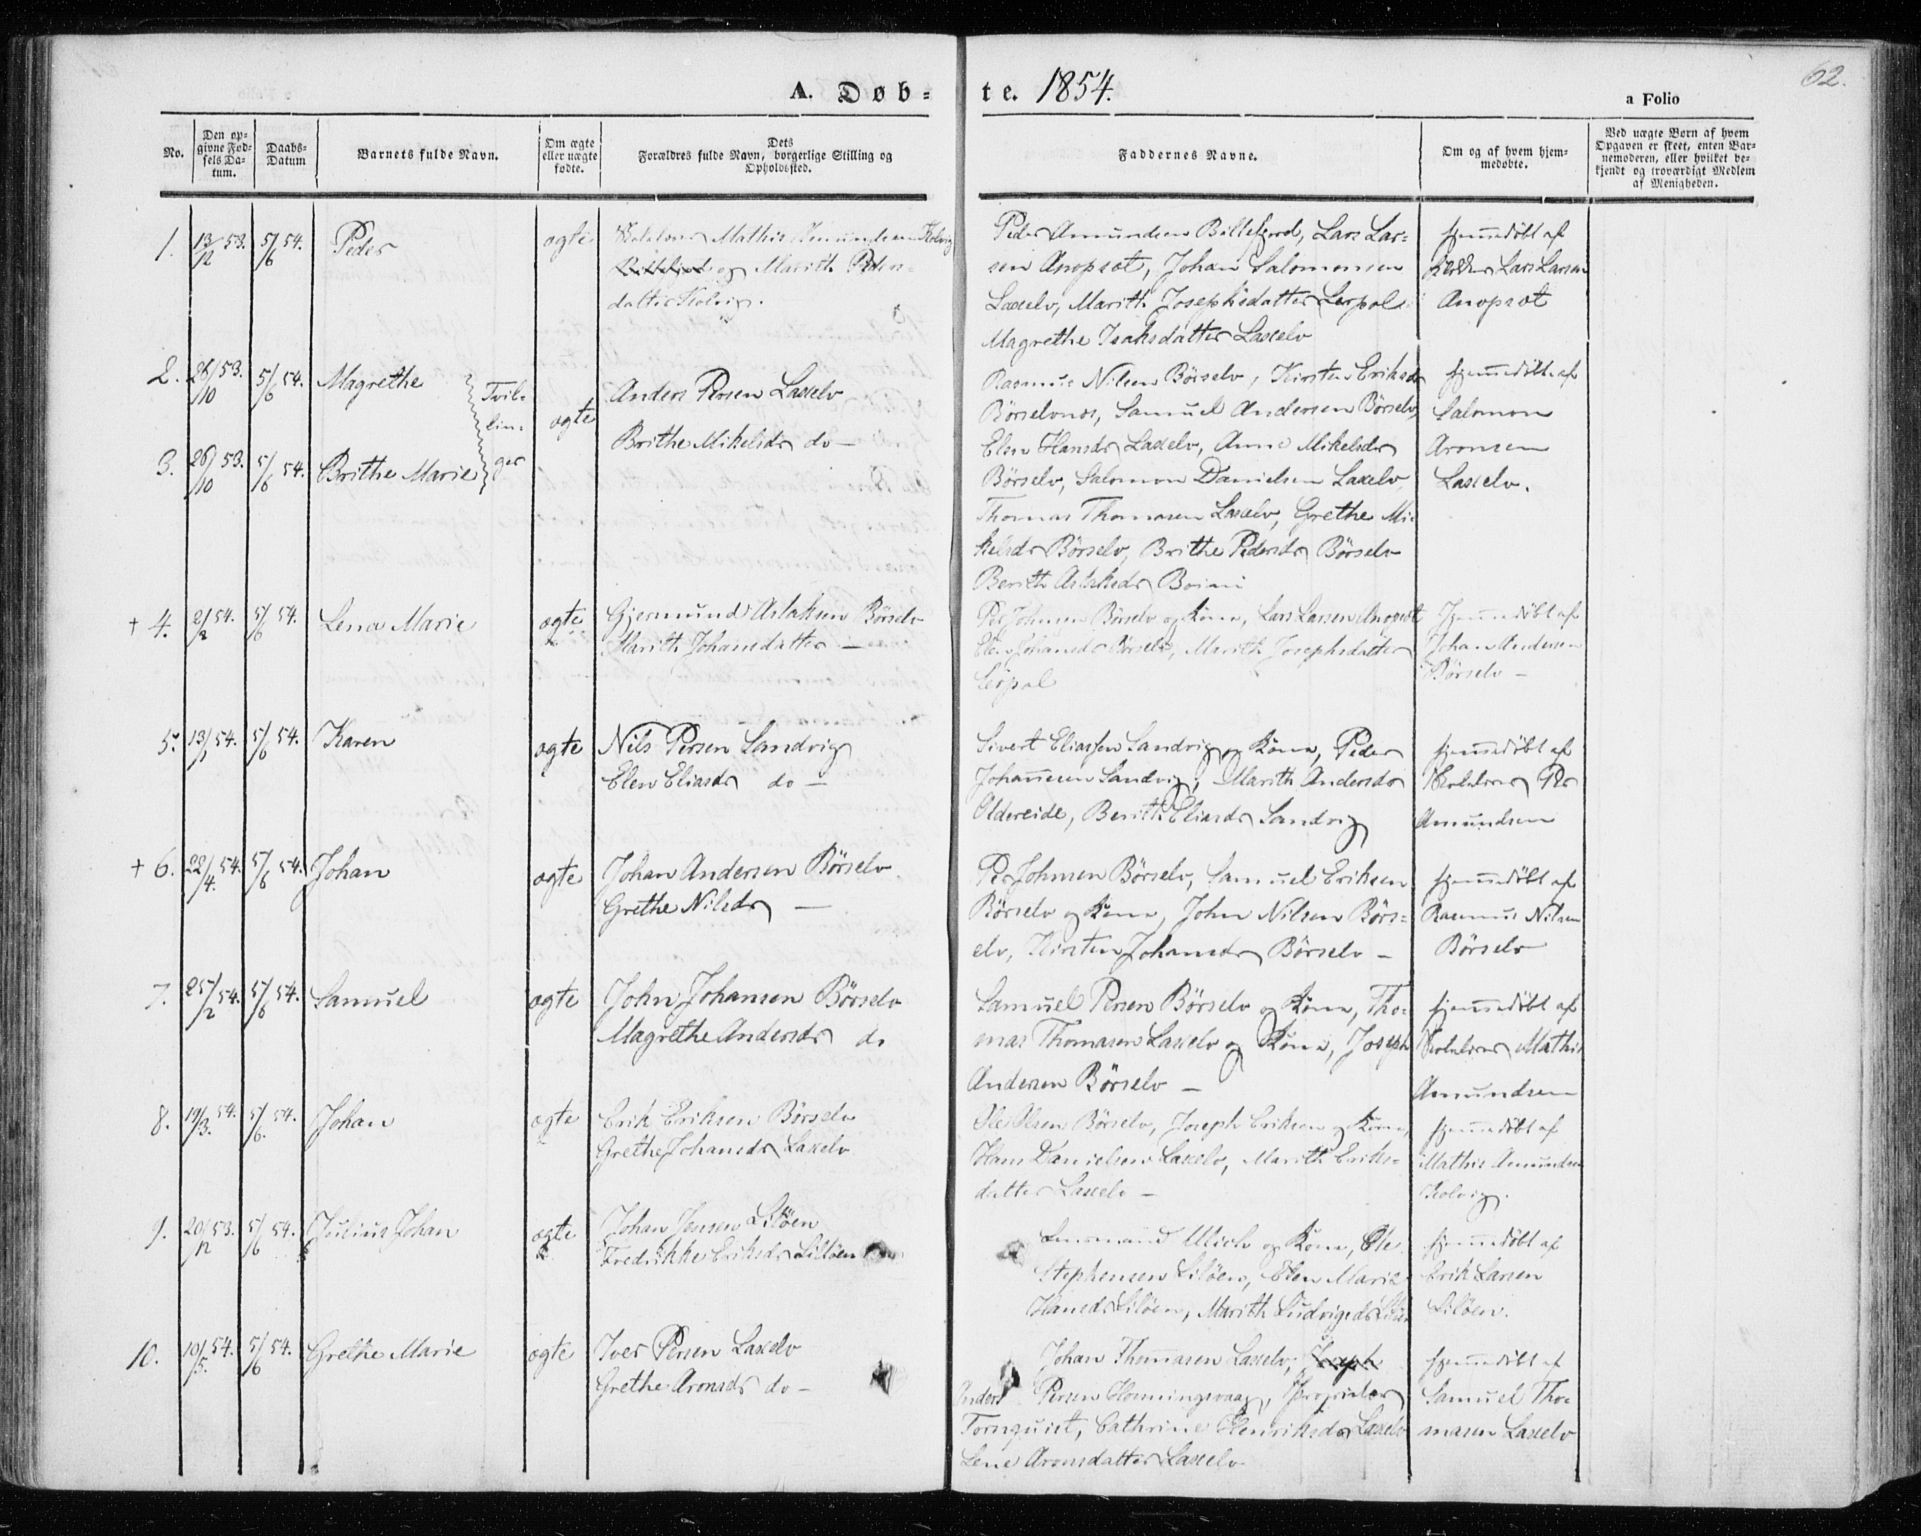 A. Døb-
te. 1854.
62.
a Folio
No.
Den op-
givne Fød-
sels Da-
tum.
Daabs-
Datum
Barnets fulde Navn.
Om ægte
eller uægte
fødte.
Dets
Forældres fulde Navn, borgerlige Stilling og
Opholdssted.
Faddernes Navne.
Om og af hvem hjem-
medøbte.
Ved uægte Børn af hvem
Opgaven er skeet, enten Bar-
nemoderen, eller hvilket be-
kjendt og troværdigt Medlem
af Menigheden.
1. 13/12 53. 5/6 54. Peder ægte
Mathis Amundsen Kolvig
og Marith Peders-
datter Kolvig.
Peder Amundsen Billefjord, Lars Lar-
sen Anopset, Johan Salomonsen
Laxelv, Marith Josephsdatter Lerpol
Magrethe Isaksdatter Laxelv
hjemmedöbt af
Lars Larsen
Anopset
2. 26/10 53. 5/6 54. Magrethe
Tvil-
lin-
ger
3. 26/10 53. 5/6 54. Brithe Marie
ægte
Anders Persen Laxelv
Brithe Mikelsdr do —
Rasmus Nilsen Börselv, Kirsten Eriksdr
Börselvnes, Samuel Andersen Börselv,
Elen Hansdr Laxelv, Anne Mikelsdr
Börselv, Salomon Danielsen Laxelv,
Thomas Thomasen Laxelv, Grethe Mi-
kelsdr Börselv, Brithe Pedersdr Börselv
Berith Aslaksdr
hjemmedöbt af
Salomon
Aronsen
Laxelv.
+ 4. 2/2 54. 5/6 54. Lena Marie ægte
Gjermund Aslaksen Börselv
Marith Johansdatter —
Per Johnsen Börselv og Kone, Lars Larsen Anopset
Elen Johansdr Börselv, Marith Josephsdatter
Lerpol
Hjemmedöbt af
Johan Andersen
Börselv —
5. 13/1 54. 5/6 54. Karen ægte
Nils Persen Sandvig
Elen Eliasdr do —
Sivert Eliassen Sandvig og Kone, Peder
Johannesen Sandvig, Marith Andersdr
Oldereide, Berith Eliasdr Sandvig
hjemmedöbt af
Skolelærer Per
Amundsen
+ 6. 22/4 54. 5/6 54. Johan ægte
Johan Andersen Börselv
Grethe Nilsdr —
Per Johnsen Börselv, Samuel Eriksen
Börselv og Kone, John Nilsen Börs-
elv, Kirsten Johansdr Börselv —
hjemmedöbt af
Rasmus Nilsen
Börselv
7. 25/2 54. 5/6 54. Samuel ægte
John Johansen Börselv
Magrethe Andersdr do
Samuel Persen Börselv og Kone, Tho-
mas Thomasen Laxelv og Kone, Joseph
Andersen Börselv —
hjemmedöbt af
Skolelærer Mathis
Amundsen
8. 19/3. 54. 5/6. 54. Johan ægte
Erik Eriksen Börselv
Grethe Johansdr Laxelv
Ole Olsen Börselv, Joseph Eriksen og Kone,
Hans Danielsen Laxelv, Marith Eriks-
datter Laxelv —
hjemmedöbt af
Mathis Amundsen
Kolvig.
9. 20/12 53. 5/6 54. Julius Johan ægte
Johan Jensen Lilöen
Fredrikke Eriksdr Lilöen
Lensmand Ulich og Kone, Ole
Stephensen Lilöen, Elen Marie
Hansdr Lilöen, Marith Ludvigsdr
hjemmedöbt af
Erik Larsen
Lilöen.
10. 10/5. 54. 5/6 54. Grethe Marie ægte
Iver Persen Laxelv
Grethe Aronsdr do —
Johan Thomasen Laxelv, Joseph
Anders Persen Honningsvaag, Proprietær
Fornquist, Cathrine Henriksdr Laxelv
Lene Aronsdatter Laxelv
hjemmedöbt af
Samuel Tho-
masen Laxelv